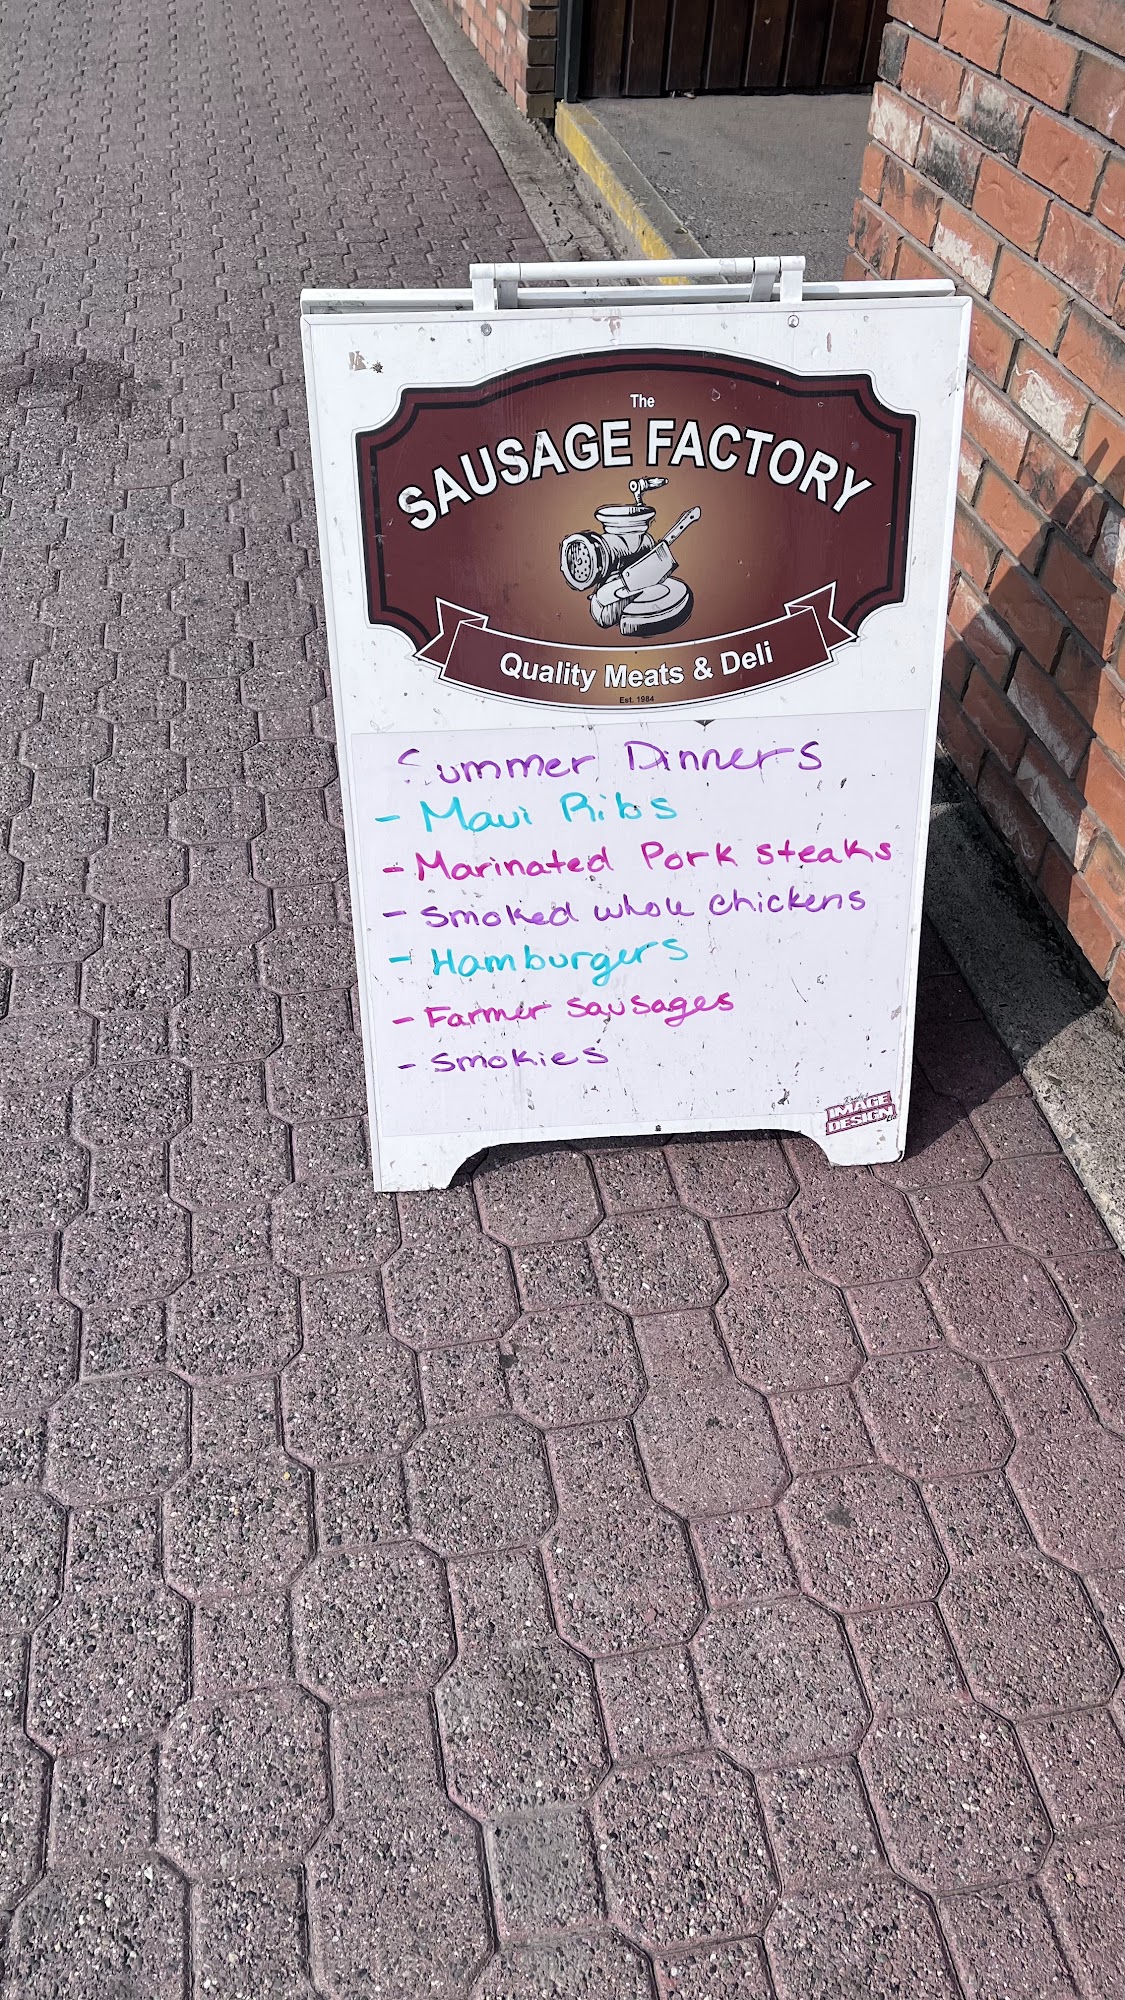 The
SAUSAGE FACTORY
Quality Meats & Deli
Est. 1984
Summer Dinners
- Maui Ribs
- Marinated Pork steaks
- Smoked whole chickens
- Hamburgers
- Farmer sausages
- Smokies
IMAGE
DESIGN